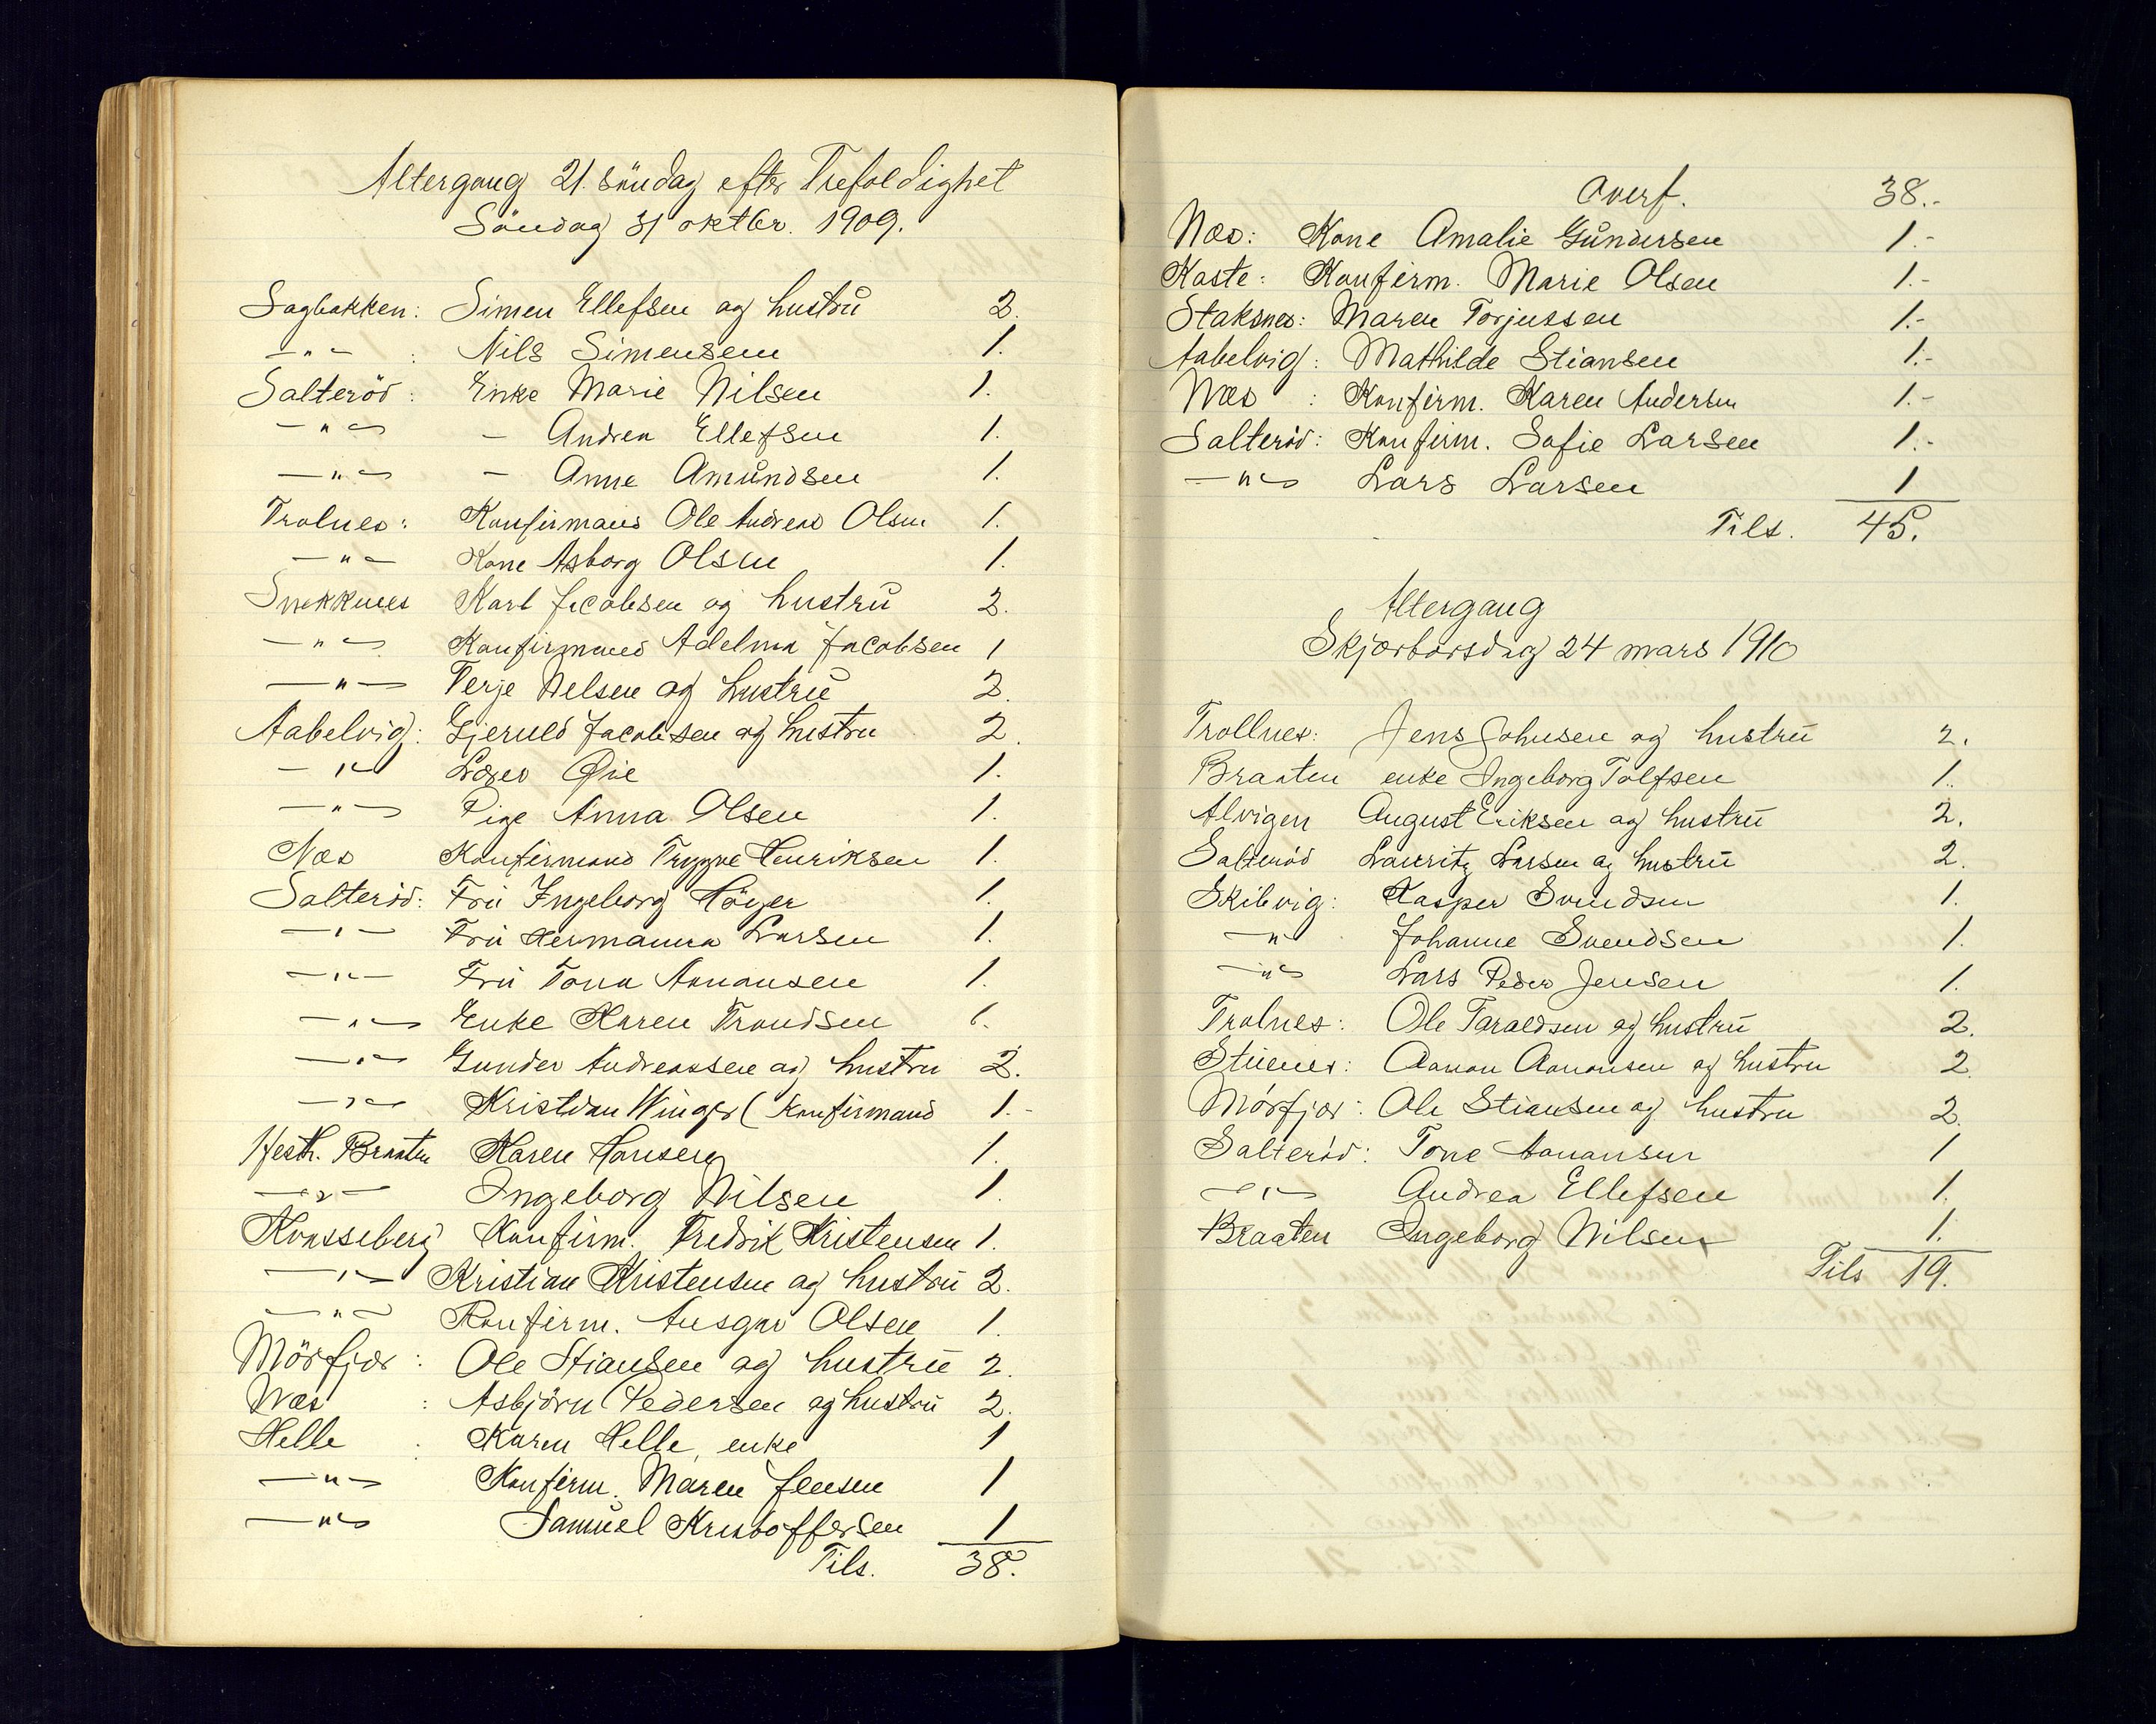 Altergang 21. söndag efter Trefoldighet
Söndag 31 oktbr. 1909.
Sagbakken: Simen Ellefsen og hustrü 2.
—"— : Nils Simensen 1.
Salteröd: Enke Marie Nilsen 1.
—"— - Andrea Ellefsen 1.
—"— - Anne Amündsen 1.
Trolnes: Konfirmand Ole Andreas Olsen 1.
—"— Kone Asborg Olsen 1.
Snekknes Karl Jacobsen og hustrü 2.
—"— Konfirmand Adelma Jacobsen 1
—"— Terje Nelsen og hustrü 2.
Aabelvig: Gjeruld Jacobsen og hustru 2.
—"— Lærer Øie 1.
—"— Pige Anna Olsen 1.
Næs Konfirmand Trygve Henriksen 1.
Salteröd: Frü Ingeborg Höyer 1.
—"— Frü Hermanna Larsen 1.
—"— Frü Tona Aanansen 1.
—"— Enke Karen Trondsen 1.
—"— Gunder Andreassen og hustru 2.
—"— Kristian Winger (Konfirmand 1.-
Hesth. Braaten Karen Hansen 1.
—"— Ingeborg Nilsen 1.
Konfirm. Fredrik Kristensen 1.
—"— Kristian Kristensen og hustrü 2.
—"— Konfirm. Ansgar Olsen 1.
Mörfjær: Ole Stiansen og hustrü 2.
Næs : Asbjörn Pedersen og hustrü 2.
Helle . Karen Helle, enke 1
—"— Konfirm. Maren Jensen 1
—"— Samüel Kristoffersen 1
Tils. 38.
Overf. 38.-
Næs: Kone Amalie Gündersen 1.-
Kaste: Konfirm. Marie Olsen 1.-
Staksnes: Maren Torjussen 1.-
Aabelvig: Mathilde Stiansen 1.-
Næs : Konfirm. Karen Andersen 1.-
Salteröd: Konfirm. Sofie Larsen 1.-
—"— Lars Larsen 1
Tils. 45.
Altergang
Skjærtorsdag 24 mars 1910
Trollnes: Jens Johnsen og hustrü 2.
Braaten enke Ingeborg Tolfsen 1.
Alvigen August Eriksen og hustrü 2.
Salteröd Lauritz Larsen og hustrü 2.
Skibvig: Kasper Svendsen 1.
—"— Johanne Svendsen 1.
—"— Lars Peder Jensen 1.
Trolnes: Ole Taraldsen og hustrü 2.
Stüenes: Aanon Aanonsen og hustru 2.
Mörfjær: Ole Stiansen og hustru 2.
Salteröd: Tone Aanansen 1
—"— Andrea Ellefsen 1.
Braaten Ingeborg Nilsen 1.
Tils 19.